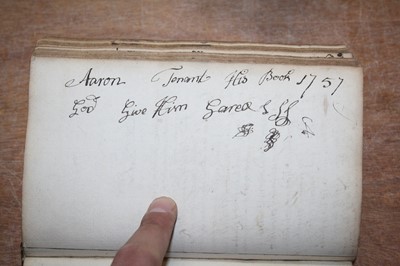 Aaron Tenant His Book 1757
God Give Him